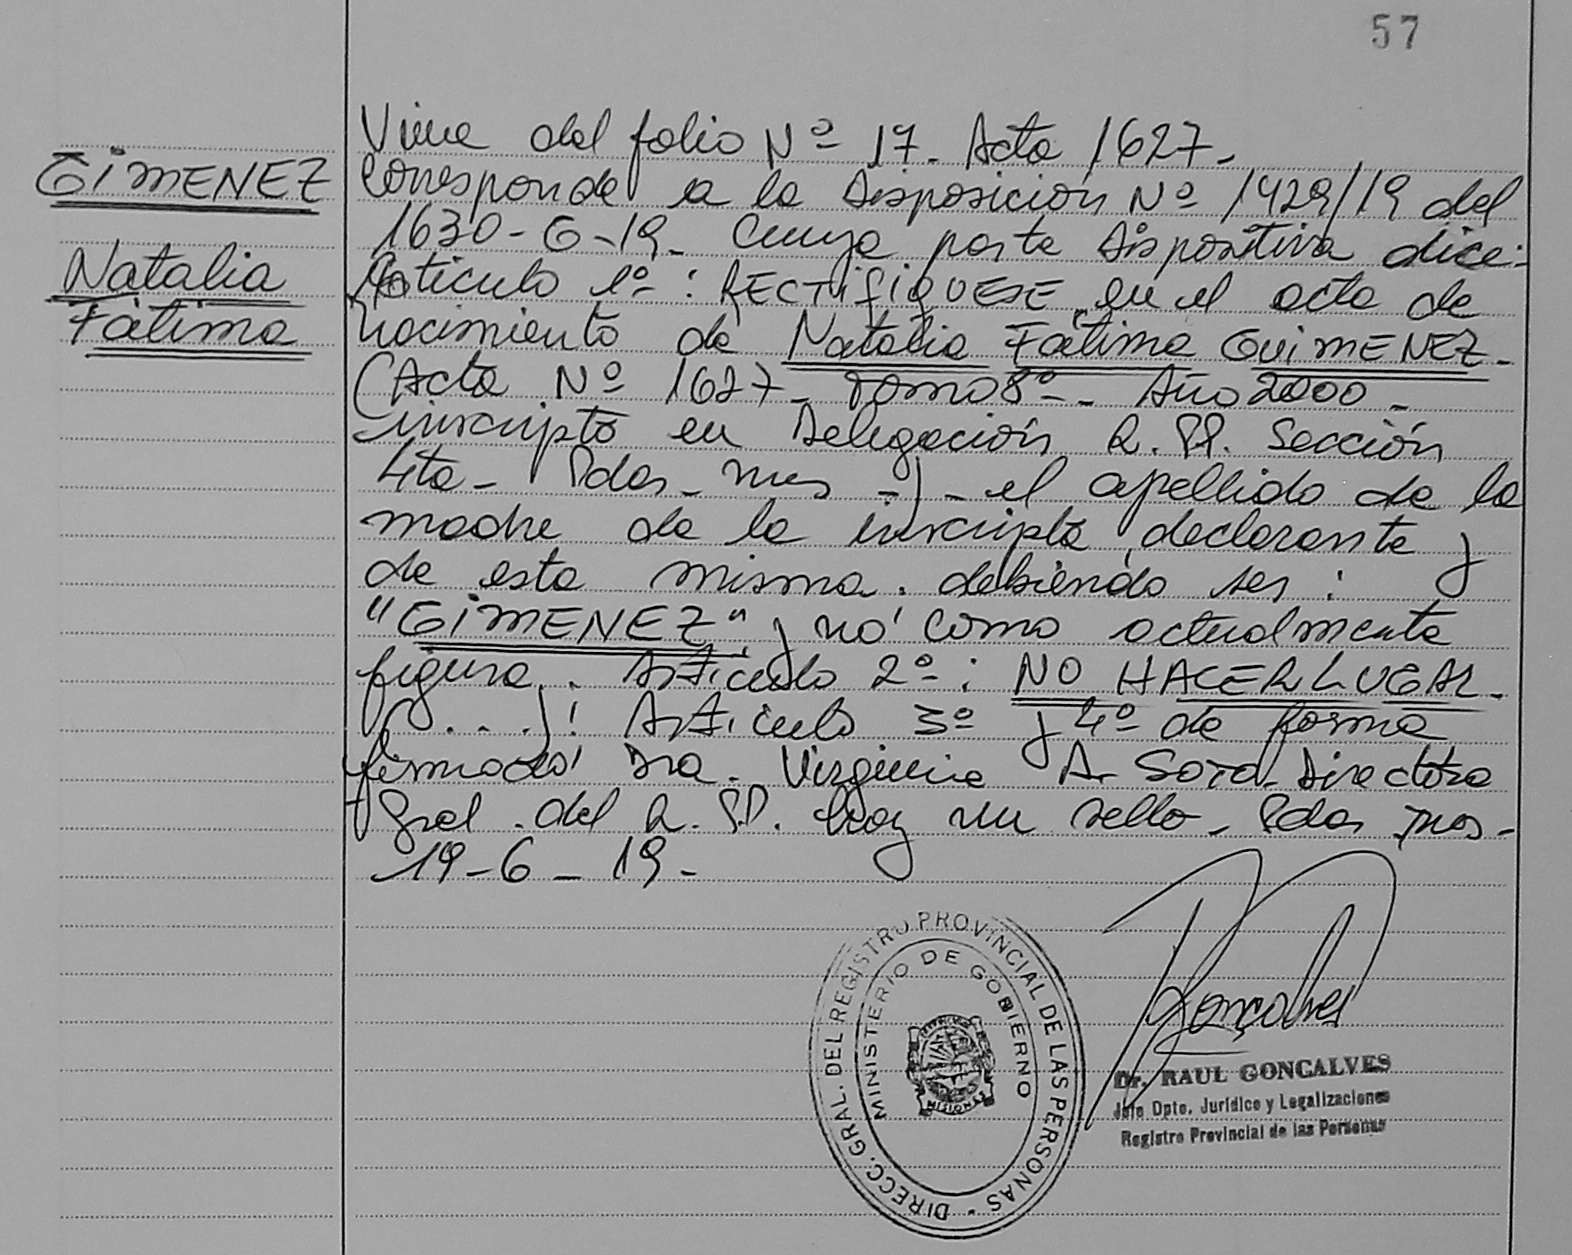 57
GIMENEZ
Natalia
Fátima
Viene del folio Nº 17. Acta 1627.
Corresponde a la Disposición Nº 1429/19 del
1630-6-19. Cuya parte dispositiva dice:
Artículo 1º: RECTIFIQUESE en el acta de
nacimiento de Natalia Fátima GUIMENEZ.
(Acta Nº 1627. Tomo 8º - Año 2000 -
inscripta en Delegación R.PP. Sección
4ta - Pdas - Mnes -) - el apellido de la
madre de la inscripta, declarante y
de esta misma. debiendo ser:
"GIMENEZ" y no como actualmente
figura. Artículo 2º: NO HACER LUGAR.
(...)! Artículo 3º y 4º de forma
firmado Dra. Virginia A. Soto Directora
Gral. del R.PP. hay un sello. Pdas Mnes.
19-6-19.
DIRECC. GRAL. DEL REGISTRO PROVINCIAL DE LAS PERSONAS -
MINISTERIO DE GOBIERNO
MISIONES
Gonçalves
Dr. RAUL GONCALVES
Jefe Dpto. Jurídico y Legalizaciones
Registro Provincial de las Personas